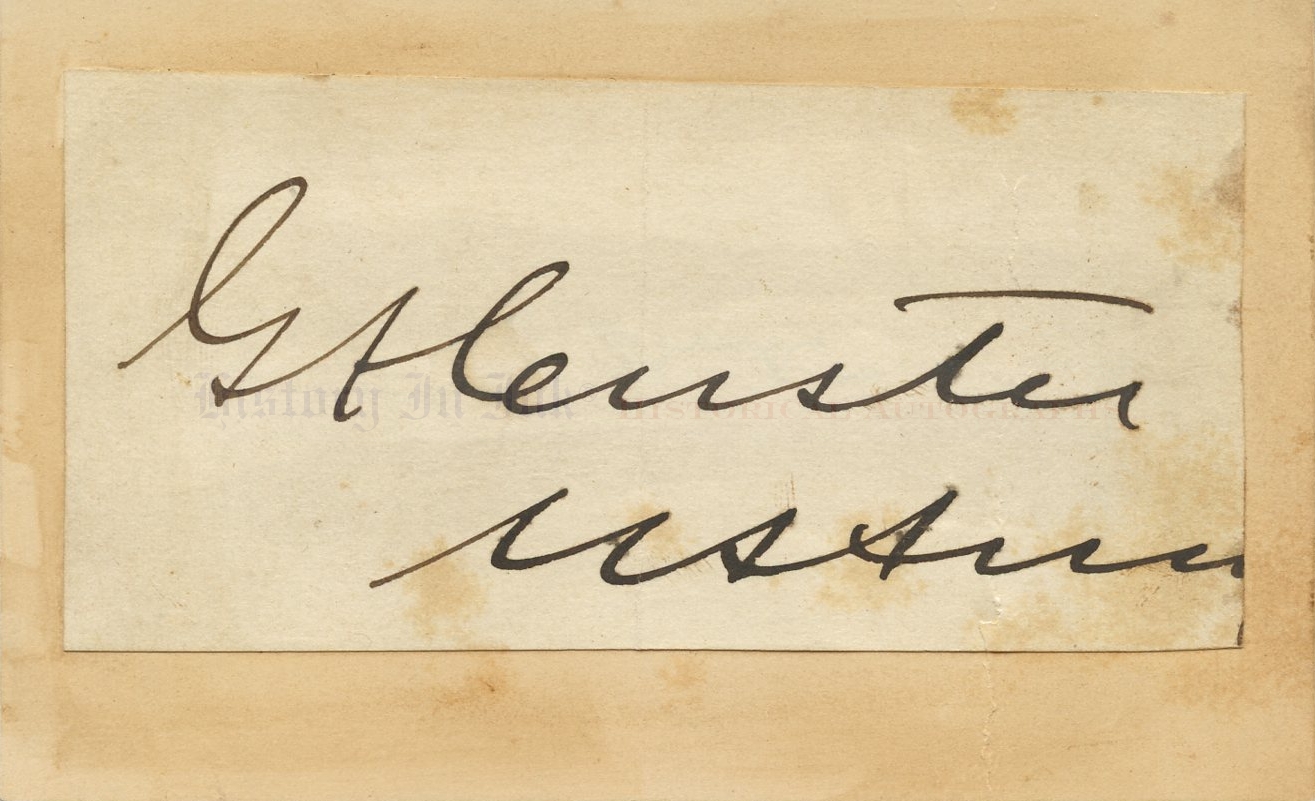 G A Custer
U S Arm
History In Ink HISTORICAL AUTOGRAPHS